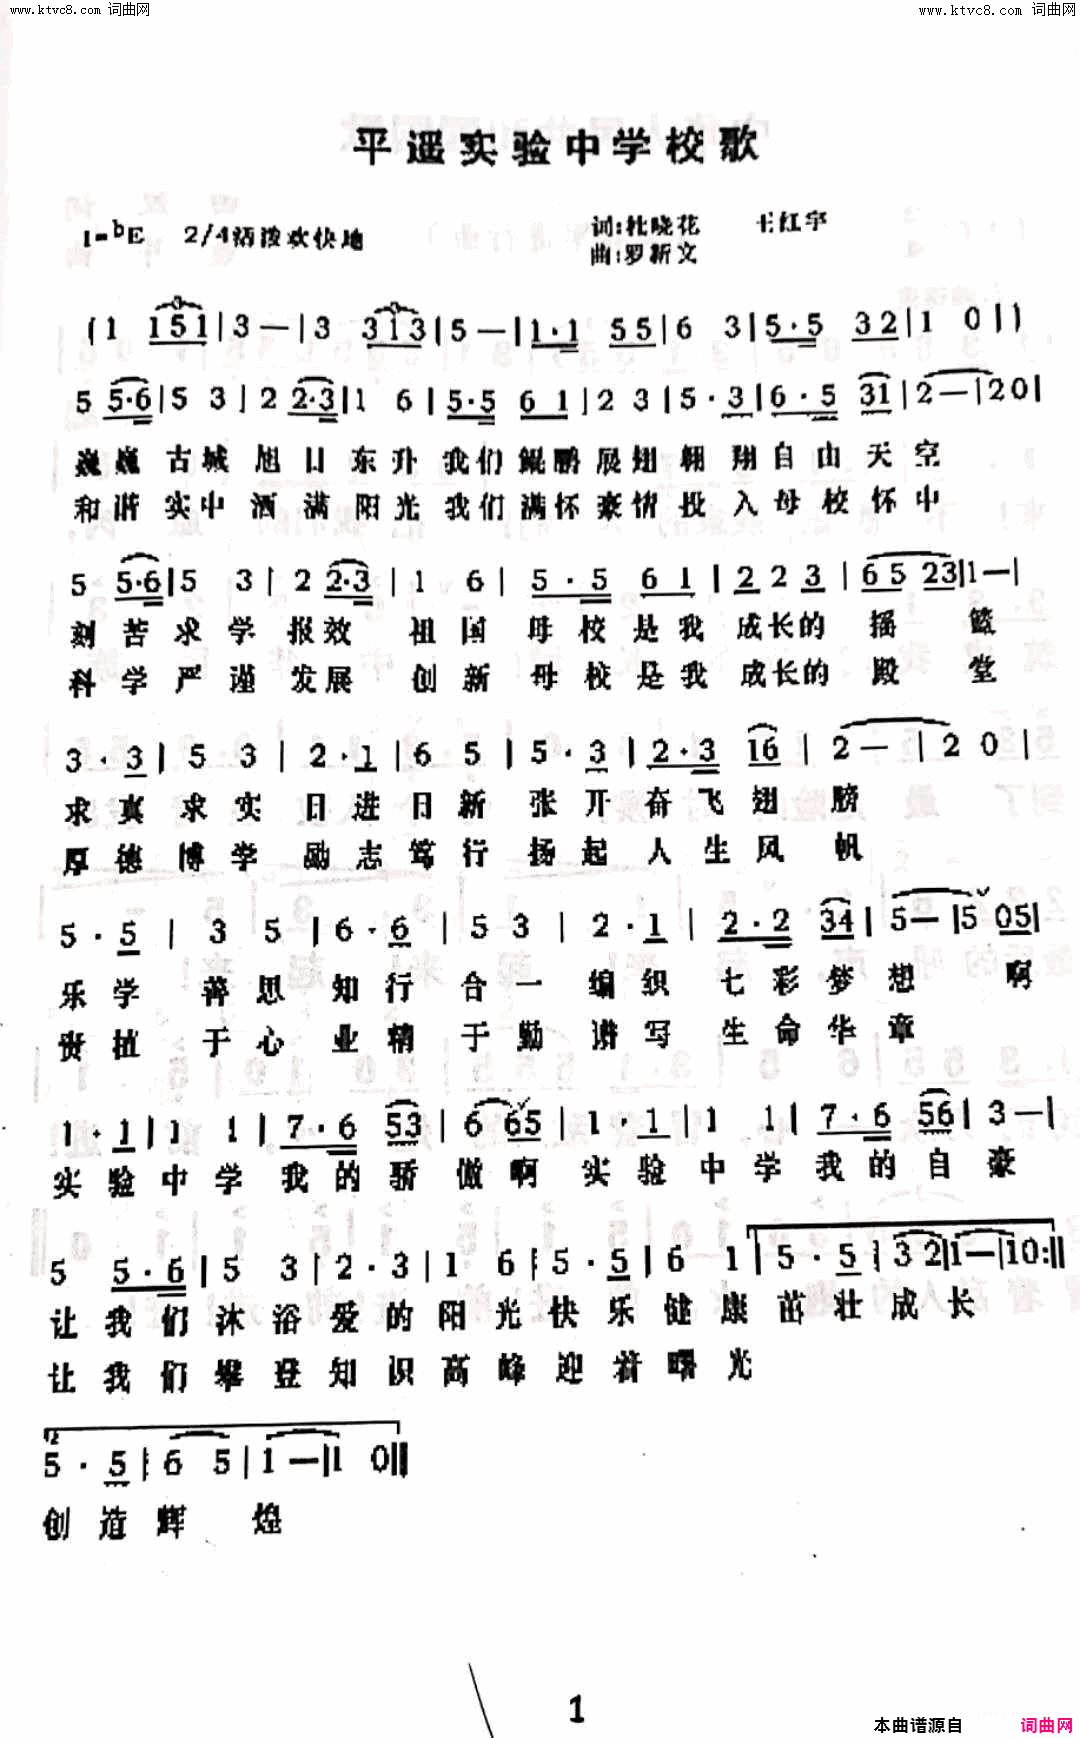 www.ktvc8.com 词曲网
www.ktvc8.com 词曲网
平遥实验中学校歌
1=bE 2/4 活泼欢快地
词:杜晓花 王红宇
曲:罗新文
(1 151|3—|3 313|5—|1·1 55|6 3|5·5 32|1 0||)
5 5·6|5 3|2 2·3|1 6|5·5 61|2 3|5·3|6·5 31|2—|20|
巍巍古城旭日东升我们鲲鹏展翅翱翔自由天空
和谐实中洒满阳光我们满怀豪情投入母校怀中
5 5·6|5 3|2 2·3|1 6|5·5 61|2 2 3|65 23|1—|
刻苦求学报效祖国母校是我成长的摇篮
科学严谨发展创新母校是我成长的殿堂
3·3|5 3|2·1|6 5|5·3|2·3 16|2—|2 0|
求真求实日进日新张开奋飞翅膀
厚德博学励志笃行扬起人生风帆
5·5|3 5|6·6|5 3|2·1|2·2 34|5—|5 05|
乐学善思知行合一编织七彩梦想啊
贵植于心业精于勤谱写生命华章
1·1|1 1|7·6 53|6 65|1·1|1 1|7·6 56|3—|
实验中学我的骄傲啊实验中学我的自豪
5 5·6|5 3|2·3|1 6|5·5|6 1|5·5|32|1—|10:||
让我们沐浴爱的阳光快乐健康茁壮成长
让我们攀登知识高峰迎着曙光
2
5·5|6 5|1—|1 0||
创造辉煌
1
本曲谱源自 词曲网